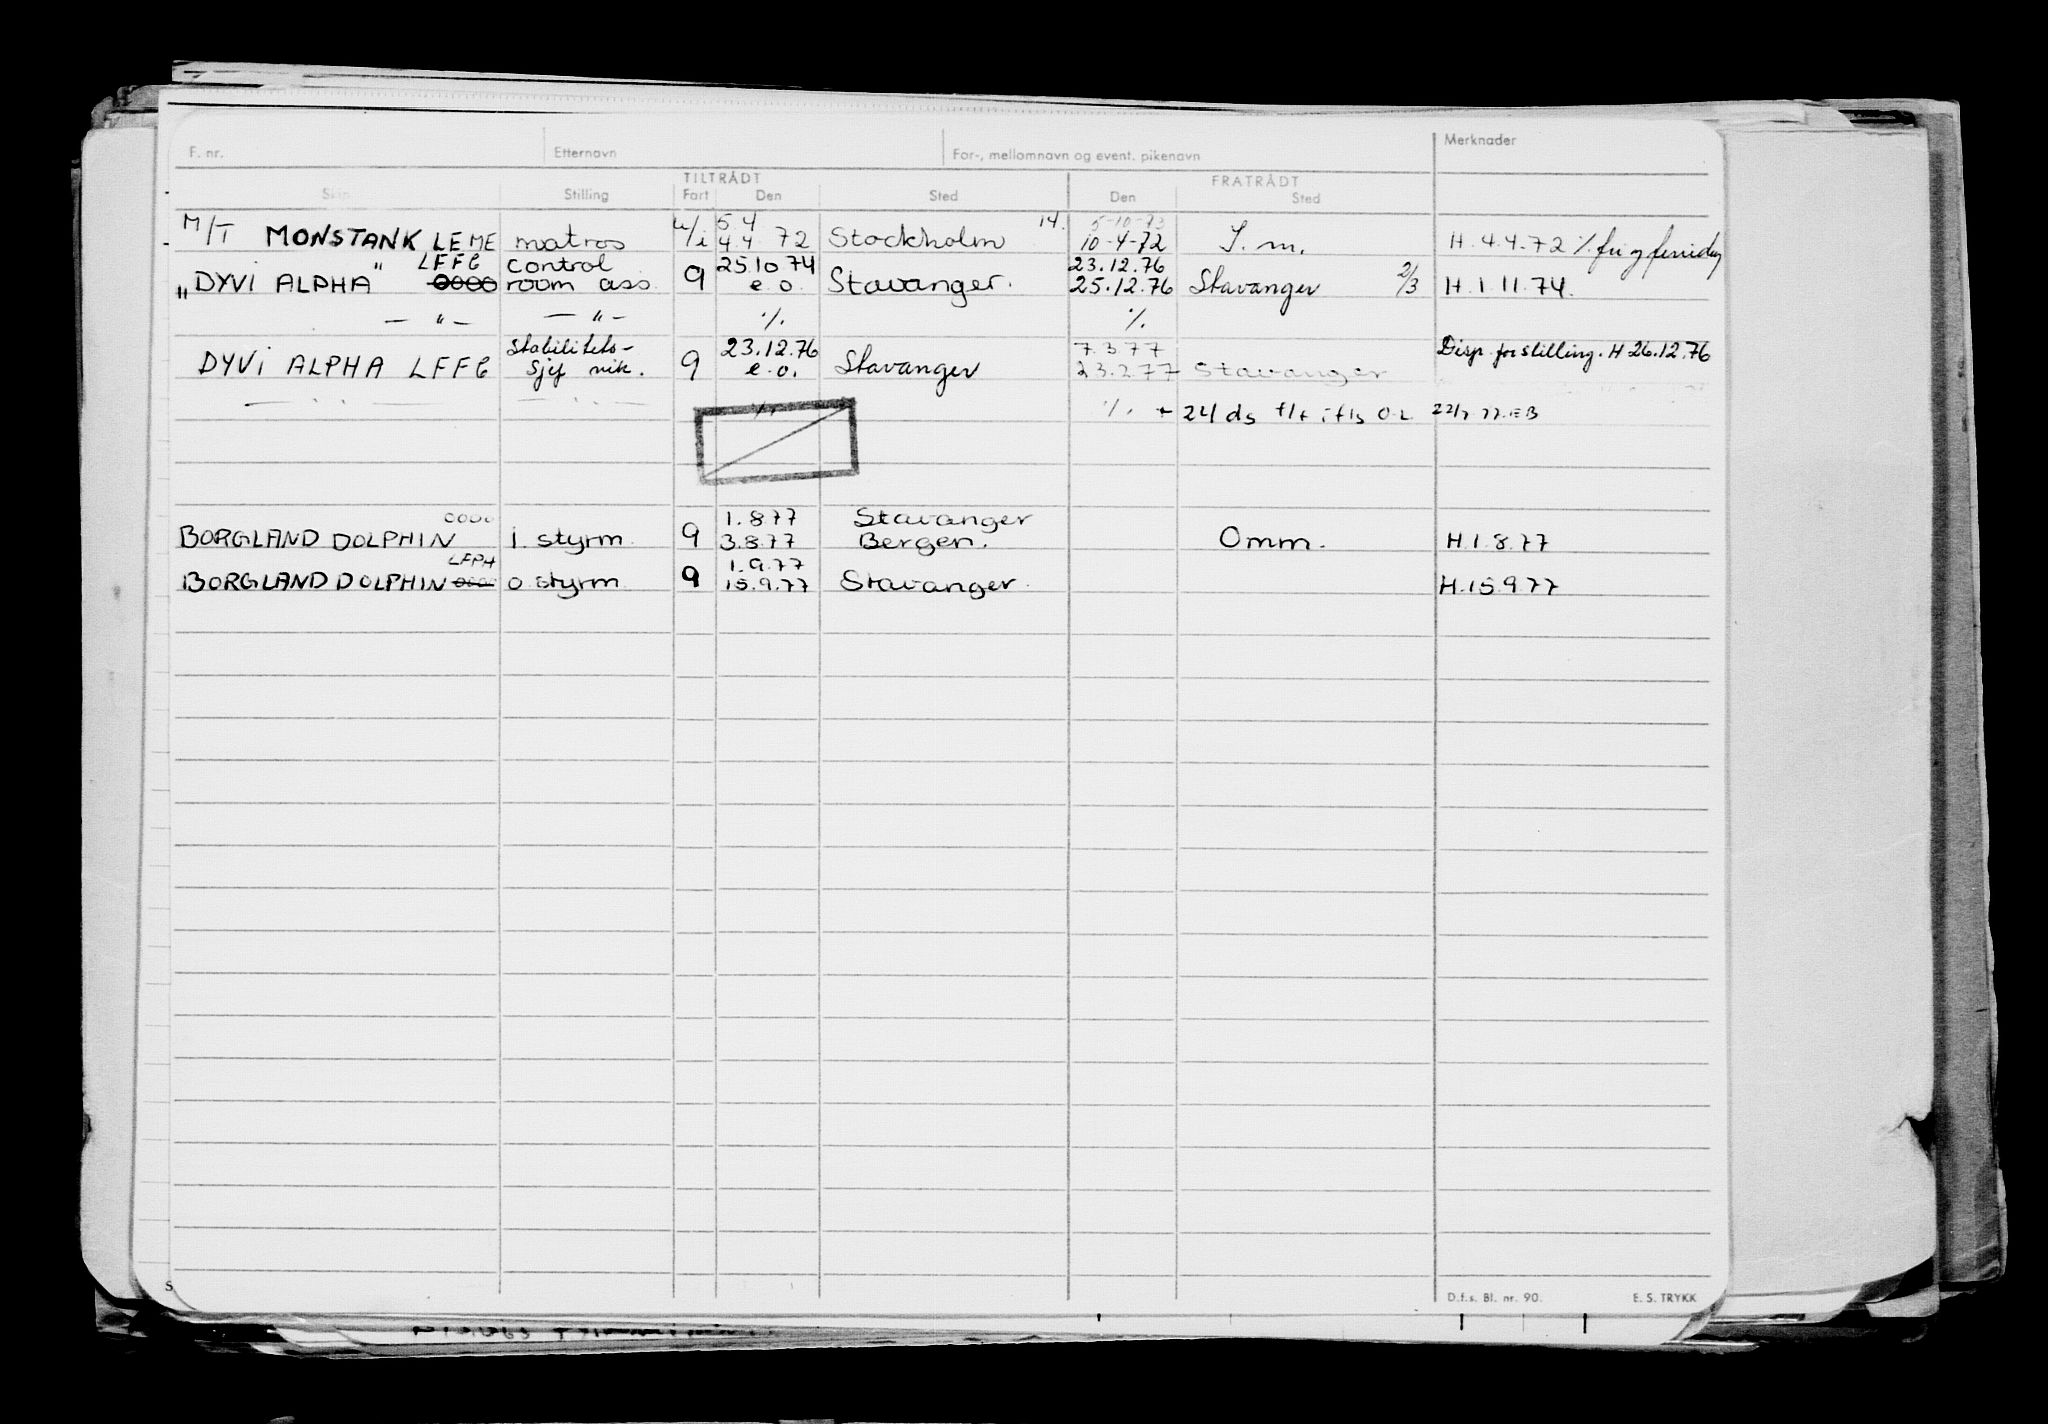 F. nr. Etternavn For-, mellomnavn og event. pikenavn Merknader
TILTRÅDT FRATRÅDT
Skip Stilling Fart Den Sted Den Sted
5 4 14. 5-10-73
M/T MONSTANK LEME matros u/i 4.4 72 Stockholm 10-4-72 S.m. H.4.4.72 %. fri og feriedag
LFFG control 25.10 74 23.12.76
"DYVI ALPHA" 0000 room ass. 9 e.o. Stavanger. 25.12.76 Stavanger 2/3 H.1.11.74.
— " — — " — %. %.
Stabilitets- 23.12.76 7.3.77 Disp. for stilling. H 26.12.76
DYVI ALPHA LFFG Sjef vik. 9 e.o. Stavanger 23.2.77 Stavanger
— " — — " — %. %. + 24 ds f/f i f/s O-L 22/7-77.EB
0000 1.8.77 Stavanger
BORGLAND DOLPHIN 1. styrm. 9 3.8.77 Bergen. Omm. H.1.8.77
LFPH 1.9.77
BORGLAND DOLPHIN 0000 o.styrm. 9 15.9.77 Stavanger. H.15.9.77
S
D.f.s. Bl. nr. 90. E. S. TRYKK